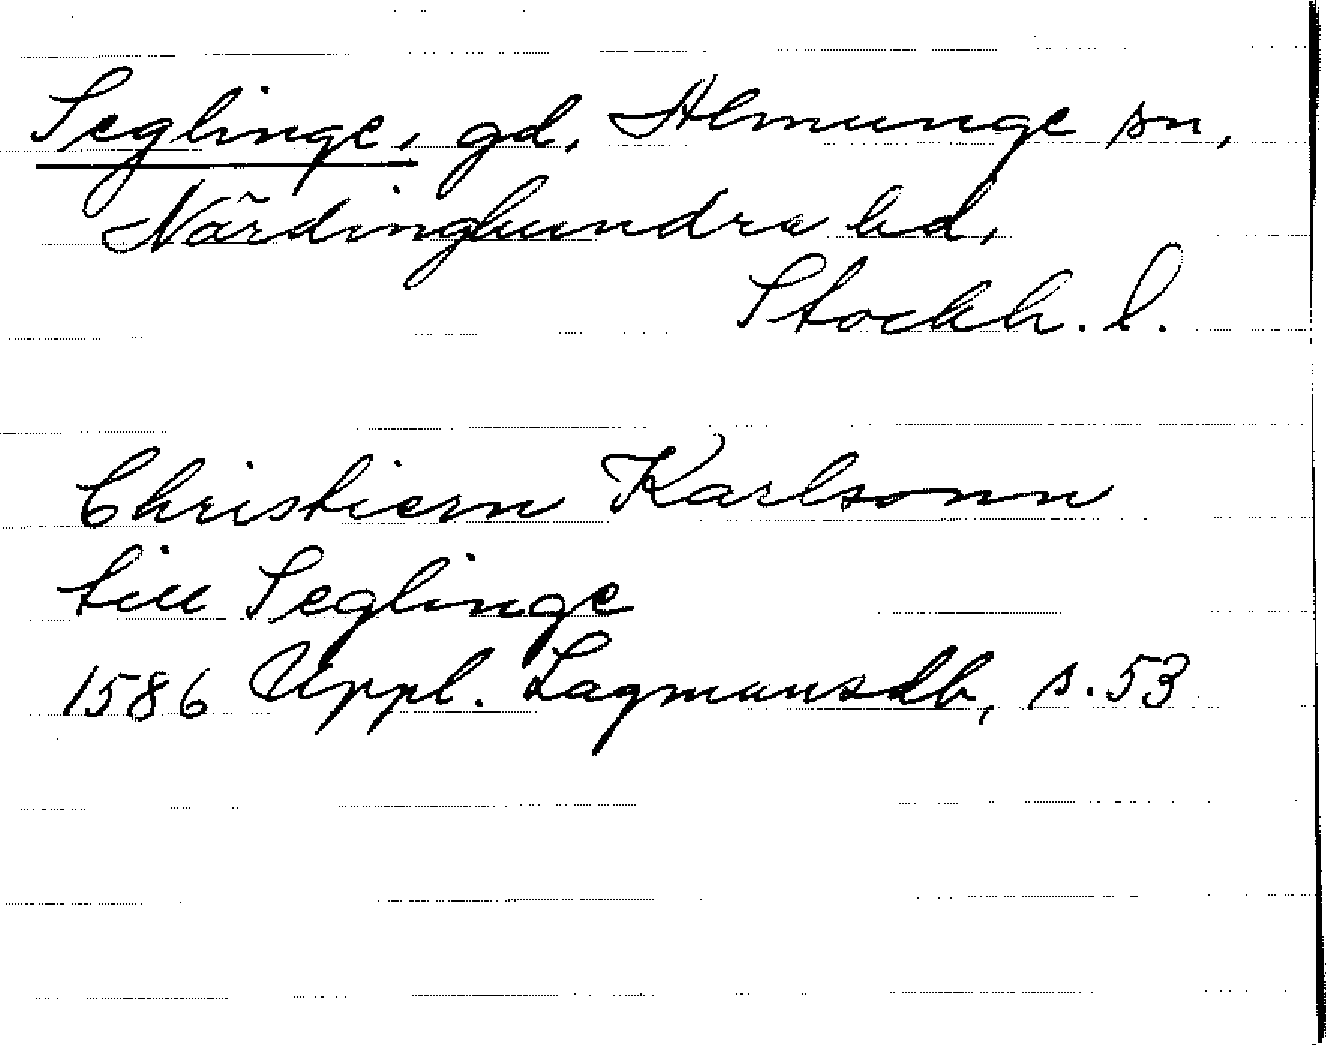 Seglinge, gd, Almunge sn,
Närdinghundra hd,
Stockh. l.
Christiern Karlsonn
till Seglinge
1586 Uppl. Lagmansdb, s. 53